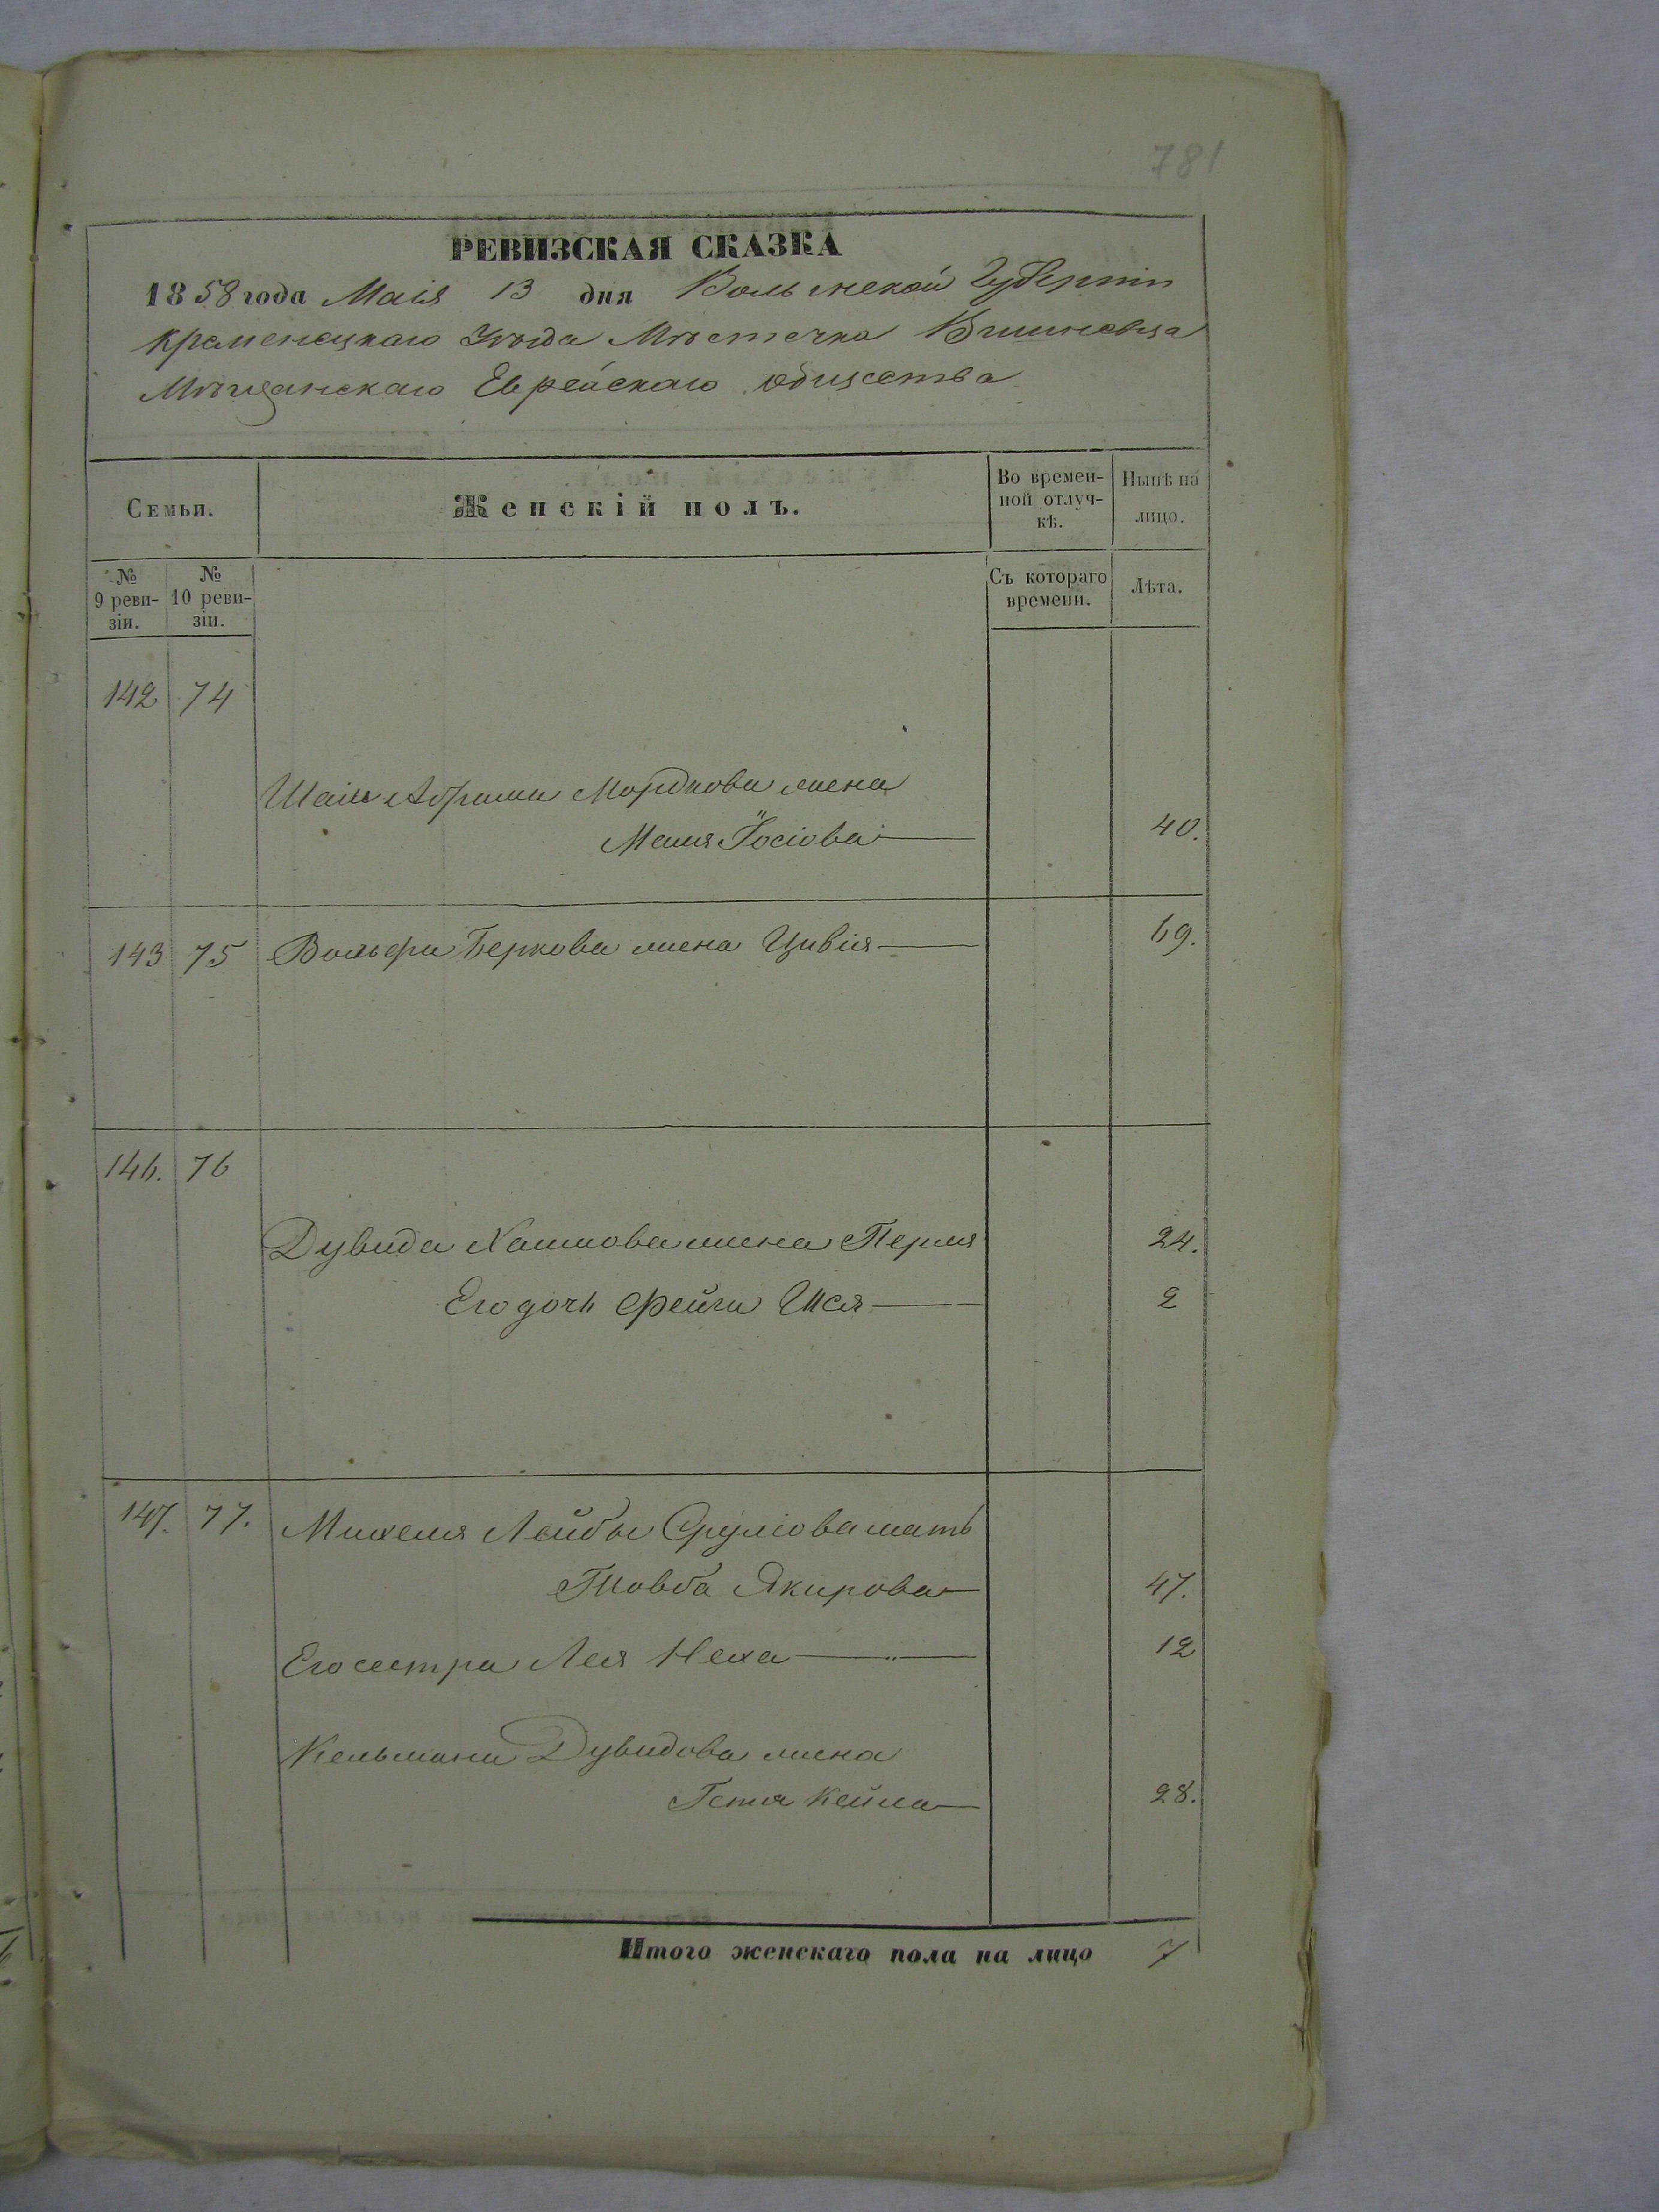 781
РЕВИЗСКАЯ СКАЗКА
1858 года Маія 13 дня Волынской Губерніи
Кременецкаго Уѣзда Мѣстечка Вишневца
Мѣщанскаго Еврейскаго общества
Семьи.
Женскій полъ.
Во времен-
ной отлуч-
кѣ.
Нынѣ на
лицо.
№
9 реви-
зіи.
№
10 реви-
зіи.
Съ котораго
времени.
Лѣта.
142 74
Шаи Абрама Мордкова жена
Маня Іосіова 40.
143 75 Вольфа Беркова жена Цивія 69.
146. 76
Дувида Хаимова жена Перля 24.
Его дочь Фейга 2
147. 77. Михеля Лейбы Срулiова мать
Товба Якирова 47.
Его сестра Лея Неха 12
Кельмана Дувидова жена
Гитля Кейла 28.
Итого женскаго пола на лицо 7